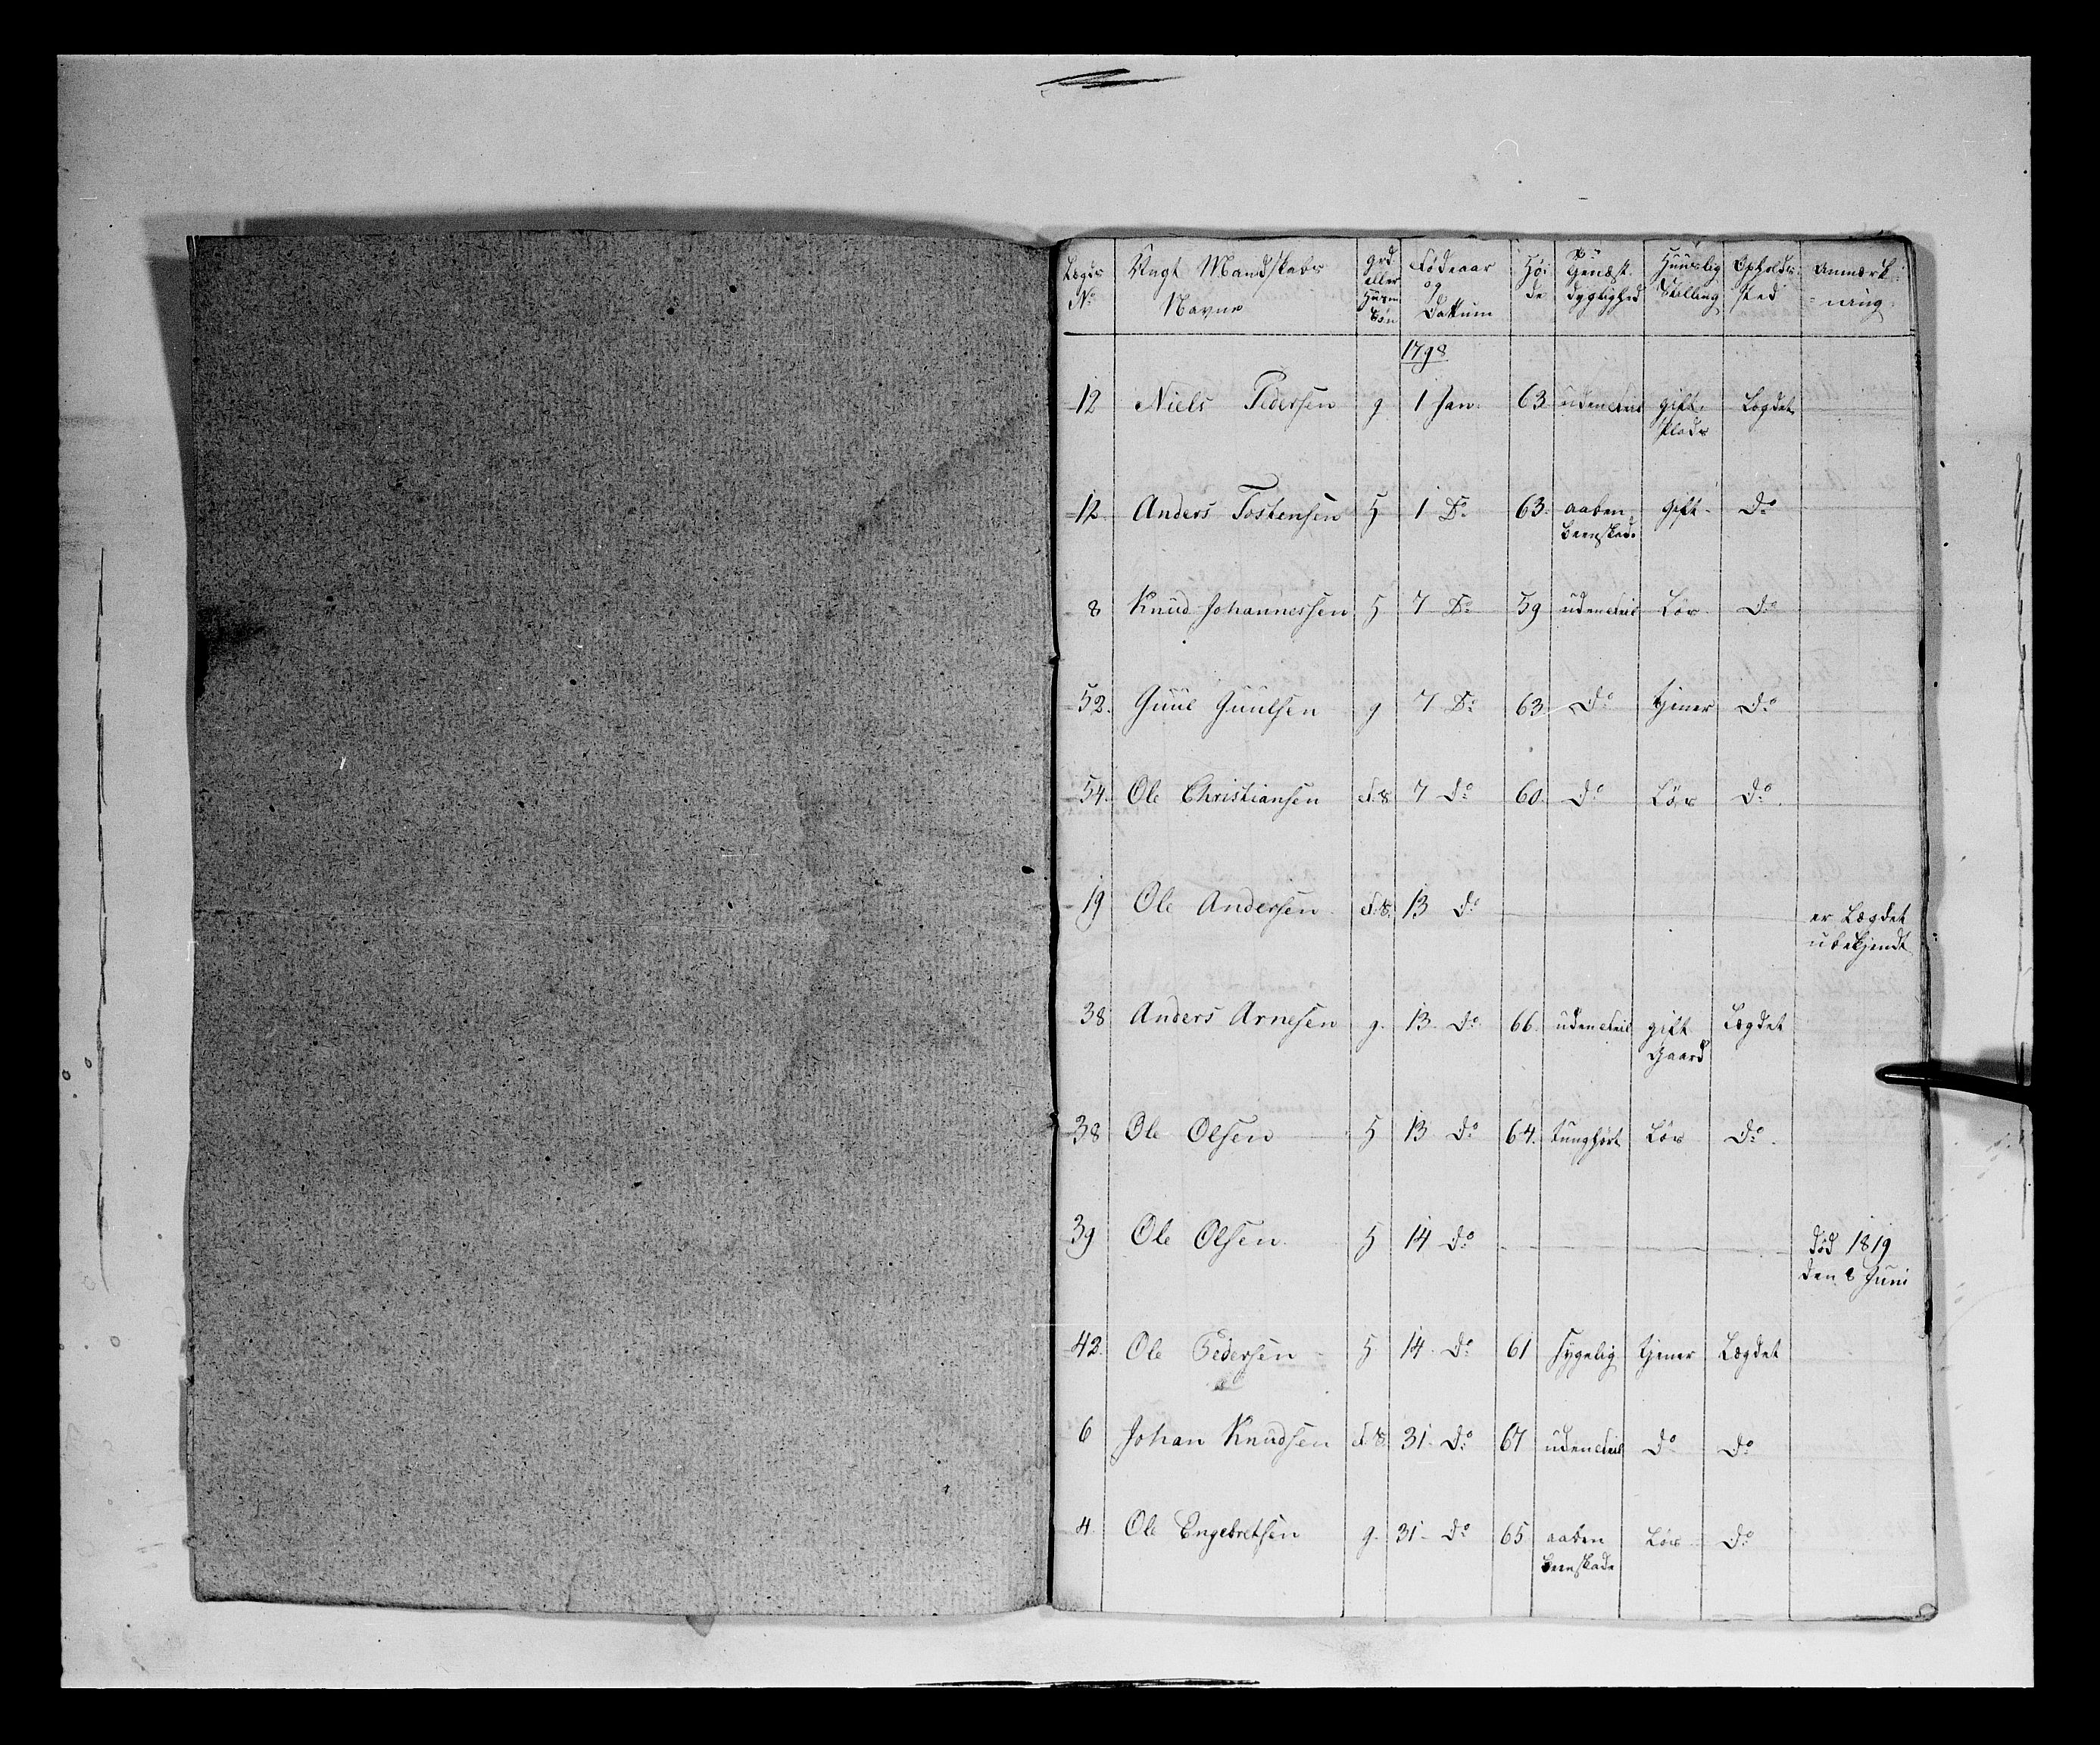 Lægds No Ungt Mandskabs Navne grd eller Huusm Søn Fødeaar og Dattum Høide Tjenestdygtighed Huuslig Stilling Opholdssted Anmærkning
1798
12 Niels Pedersen g 1 Jan. 63 uden Feil gift. Lægdet
plads
12 Anders Tostensen H 1 Do 63. aaben gift Do
beenskade
8 Knud Johannessen H 7 Do 59 uden Feil Løs Do
52. Guul Guulsen g 7 Do 63 Do tjener Do
54. Ole Christiansen 7 Do 60. Do Løs Do
19 Ole Andersen 13 Do er Lægdet
ubekjendt
38 Anders Arnesen g. 13 Do 66. uden Feil gift Lægdet
Gaard
38 Ole Olsen H 13 Do 64. tunghørt Løs Do
39 Ole Olsen H 14 Do død 1819
den 8 Juni
42. Ole Pedersen H 14 Do 61 sygelig tjener Lægdet
6 Johan Knudsen 31 Do 67 uden Feil Do Do
4 Ole Engebretsen g. 31 Do 65 aaben Løs Do
beenskade